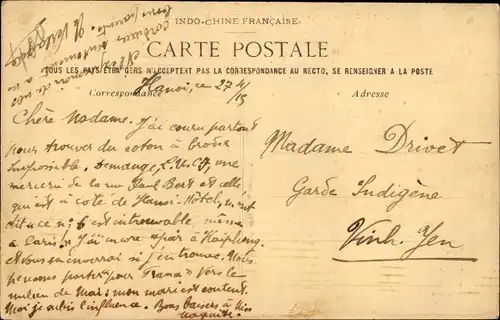 INDO-CHINE FRANÇAISE
CARTE POSTALE
TOUS LES PAYS ÉTRANGERS N'ACCEPTENT PAS LA CORRESPONDANCE AU RECTO, SE RENSEIGNER A LA POSTE
Correspondance
Adresse
Hanoi, ce 27/4/15
Chère Madame. J'ai couru partout
pour trouver du coton à broder
Impossible. Demange, L'U.C.I, une
mercerie de la rue Paul Bert et celle
qui est à côté de Hanoi-Hôtel, m'ont
dit que ce n° 6 est introuvable même
à Paris. J'ai encore espoir à Haiphong.
et vous en enverrai si j'en trouve. Nous
pensons partir pour France vers le
milieu de Mai: mon mari est content.
Moi je subis l'influence. Bons baisers à
Madame Drivet
Garde Indigène
Vinh-Yen